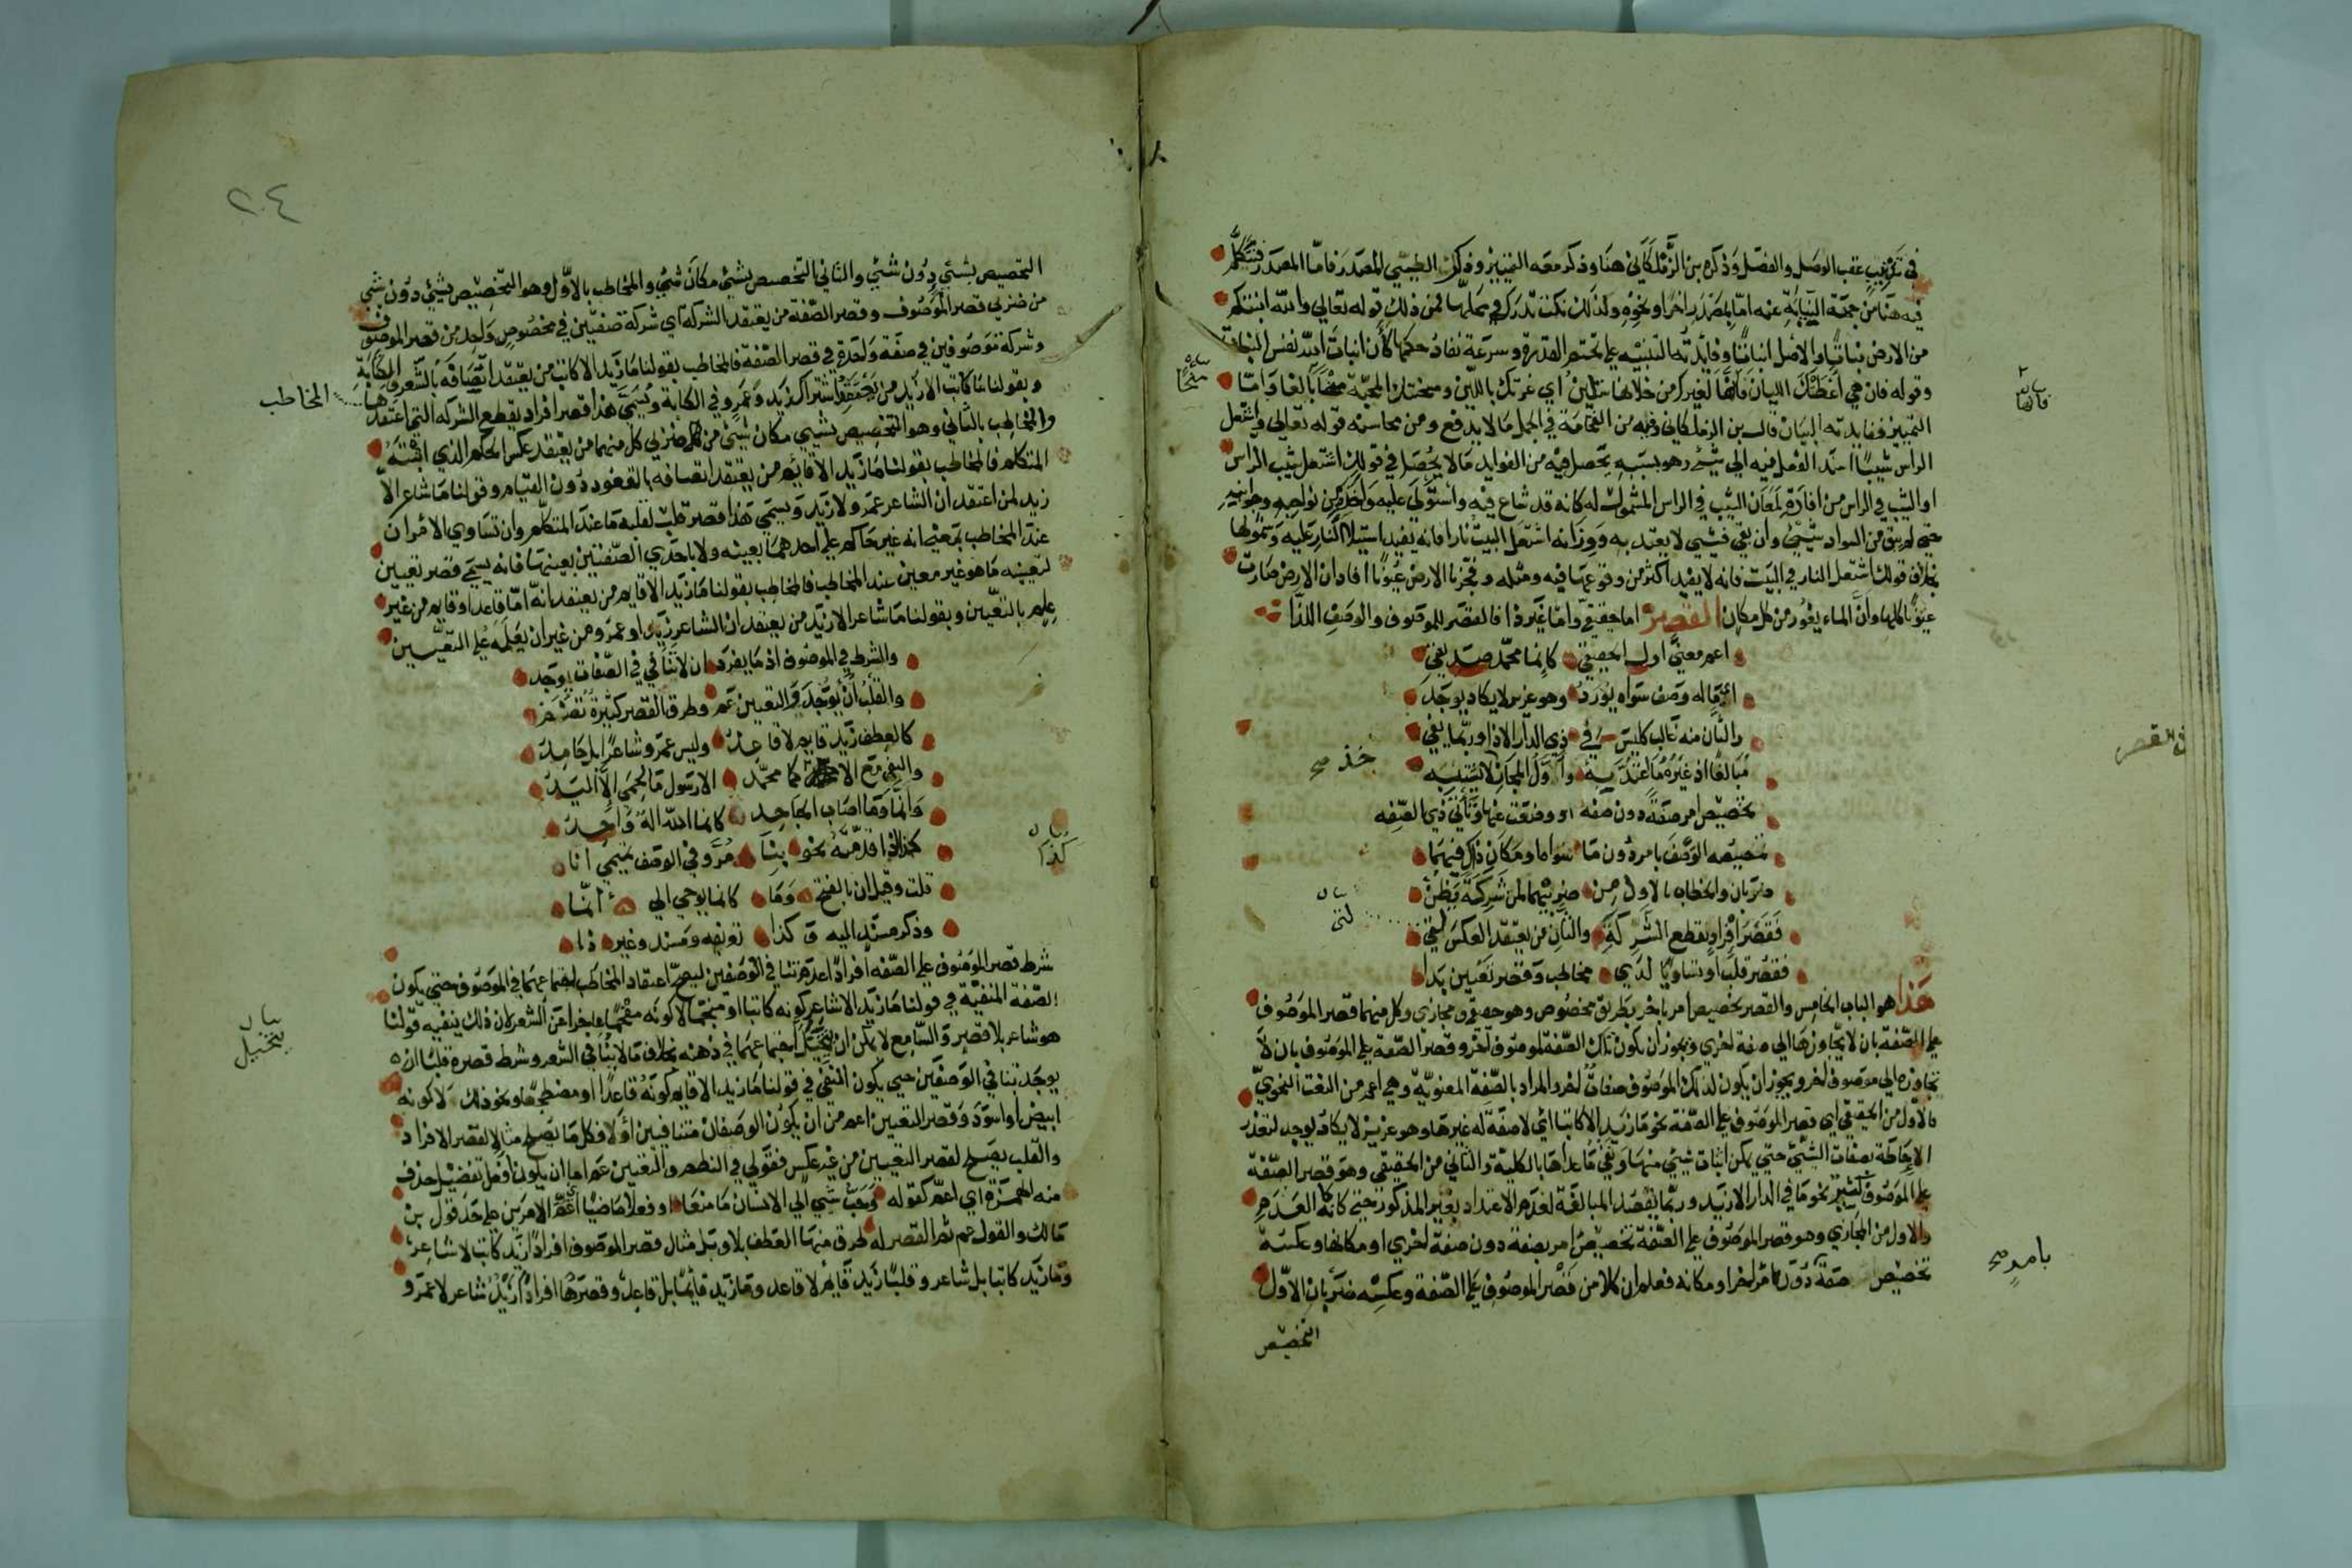 في تقرير عقب الوصل والفصل وذكره بن الزملكاني هنا وذكر معه التمييز وذكر الطيبي المصدر فاما المصدر فنتكلم
فيه هنا من جهة النيابة عنه اما بمصدر اخر او نحوه ولذلك نكت تدرك في محلها فمن ذلك قوله تعالي والله انبتكم
من الارض نباتا والاصل انباتا وفايدته التنبيه علي تحتم القدرة وسرعة نفاذ حكمها كأن انبات الله نفس النبات
وقوله فان هي اعطتك الليان فانها لغيرك من خلانها ستلين اي غرتك باللين ومنحتك المحبة محضا بالغا واما
التمييز ففايدته البيان قال بن الزملكاني وفيه من الفخامة في الجمل ما لا يدفع ومن محاسنه قوله تعالي واشتعل
الراس شيبا اسند الفعل فيه الي شيء وهو بسببه تحصل فيه من الفوايد ما لا يحصل في قولك اشتعل شيب الراس
او الشيب في الراس من افادة لمعان الشيب في الراس المشمول له كانه قد شاع فيه واستولي عليه واخذ من نواحيه وجوانبه
حتي لم يبق من السواد شيء وان بقي فشيء لا يعتد به ووزانه اشتعل البيت نارا فانه يفيد استيلا النار عليه وشمولها
بخلاف قولك اشتعل النار في البيت فانه لا يفيد اكثر من وقوعها فيه ومثله وفجرنا الارض عيونا افاد ان الارض صارت
عيونا كلها وان الماء يفور من كل مكان القصر اما حقيقي واما غير ذا فالقصر للموصوف والوصف اللذا
اعم معني اول الحقيقي كانما محمد صديقي
اي ما له وصف سواه يورد وهو عزيز لا يكاد يوجد
والثان منه غالب كليس في ذي الدار الا ذا وربما يفي
مبالغا اذ غيره ما اعتد به واول المجاز لا يشتبه
تخصيص امر صفة دون صفه او وضعت عنها وثاني ذي الصفه
تخصيصه الوصف بامر دون ما سواه او مكان ذاك فيهما
ضربان والخطاب بالاول من ضربيهما لمن شركة يظن
فقصر افراد لقطع الشركة والثان من يعتقد العكس لقي
فقصر قلب او تساويا لدي مخاطب وقصر تعيين بدا
هذا هو الباب الخامس والقصر تخصيص امر باخر بطريق مخصوص وهو حقيقي ومجازي وكل منهما قصر الموصوف
علي الصفة بان لا يتجاوزها الي صفة اخري ويجوز ان يكون تلك الصفة لموصوف آخر وقصر الصفة علي الموصوف بان لا
تجاوزه الي موصوف آخر ويجوز ان يكون لذلك الموصوف صفات اخر والمراد بالصفة المعنوية وهي اعم من النعت النحوي
فالاول من الحقيقي اي قصر الموصوف علي الصفة نحو ما زيد الا كاتبا اي لا صفة له غيرها وهو عزيز لا يكاد يوجد لتعذر
الاحاطة بصفات الشيء حتي يمكن اثبات شيء منها ونفي ما عداها بالكلية والثاني من الحقيقي وهو قصر الصفة
علي الموصوف كثير نحو ما في الدار الا زيد وربما يقصد المبالغة لعدم الاعتداد بغير المذكور حتي كانه كالعدم
والاول من المجازي وهو قصر الموصوف علي الصفة تخصيص امر بصفة دون صفة اخري او مكانها وعكسه
تخصيص صفة دون امر اخر او مكانه فعلم ان كلا من قصر الموصوف علي الصفة وعكسه ضربان الاول
التخصيص
بيان فانها
بيان
خذ صح
بيان لقي
في القصر
بامر صح
٢٤
التخصيص بشيء دون شيء والثاني التخصيص بشيء مكان شيء والمخاطب بالاول وهو التخصيص بشيء دون شيء
من ضربي قصر الموصوف وقصر الصفة من يعتقد الشركة اي شركة صفتين في مخصوص واحد من قصر الموصوف
وشركة موصوفين في صفة واحدة في قصر الصفة فالمخاطب بقولنا ما زيد الا كاتب من يعتقد اتصافه بالشعر والكتابة
وبقولنا ما كاتب الا زيد من يعتقد اشتراك زيد وعمرو في الكتابة ويسمي هذا قصر افراد يقطع الشركه التي اعتقدها
والمخاطب بالثاني وهو التخصيص بشيء مكان شيء من كل ضربي كل منهما من يعتقد عكس الحكم الذي اثبته
المتكلم فالمخاطب بقولنا ما زيد الا قايم من يعتقد اتصافه بالقعود دون القيام وقولنا ما شاعر الا
زيد لمن اعتقد ان الشاعر عمرو لا زيد ويسمي هذا قصر قلب لقلبه ما عند المتكلم وان تساوي الامران
عند المخاطب بمعني انه غير حاكم علي احدهما بعينه ولا باحدي الصفتين بعينها فانه يسمي قصر تعيين
لتعيينه ما هو غير معين عند المخاطب فالمخاطب بقولنا ما زيد الا قايم من يعتقد انه اما قاعد او قايم من غير
علم بالتعيين وبقولنا ما شاعر الا زيد من يعتقد ان الشاعر زيد او عمرو من غير ان يعلمه علي التعيين
والشرط في الموصوف اذ ما يفرد ان لا تنافي في الصفات يوجد
والقلب ان يوجد والتعيين عم وطرق القصر كثيرة تضم
كالعطف زيد قايم لا قاعد وليس عمرو شاعرا بل حامد
والنفي مع الا كما محمد الا رسول ما الحمي الا اليد
وانما وما اصاب الجاحد كانما الله اله واحد
كذاك اذا قدمته نحو بنا مر وفي الوصف تميمي انا
قلت وقيل ان بالفتح وما كانما يوحي الي انما
وذكر مسند اليه وكذا تعريفه ومسند وغير ذا
شرط قصر الموصوف علي الصفه افرادا عدم تنافي الوصفين ليصح اعتقاد المخاطب اجتماعهما في الموصوف حتي يكون
الصفة المنفية في قولنا ما زيد الا شاعر كونه كاتبا او منجما لا كونه مفحما عاجزا عن الشعر لان ذلك ينفيه قولنا
هو شاعر بلا قصر والسامع لا يمكن ان يتخيل اجتماعهما في ذهنه بخلاف ما لا ينافي الشعر وشرط قصره قلبا ان
يوجد تنافي الوصفين حتي يكون المنفي في قولنا ما زيد الا قايم كونه قاعدا او مضطجعا ونحو ذلك لا كونه
ابيض او اسود وقصر التعيين اعم من ان يكون الوصفان متنافيين أولا فكل ما يصلح مثالا لقصر الافراد
والقلب يصلح لقصر التعيين من غير عكس فقولي في النظم والتعيين عم اما ان يكون افعل تفضيل حذف
منه الهمزة اي اعم كقوله وحب شيء الي الانسان ما منعا او فعلا ماضيا اي عم الامرين علي حد قول بن
مالك والقول عم ثم القصر له طرق منها العطف بلا وبل مثال قصر الموصوف افرادا زيد كاتب لا شاعر
وما زيد كاتبا بل شاعر وقلبا زيد قايم لا قاعد وما زيد قايما بل قاعد وقصرها افرادا زيد شاعر لا عمرو
المخاطب
بيان كذا
بيان يتخيل